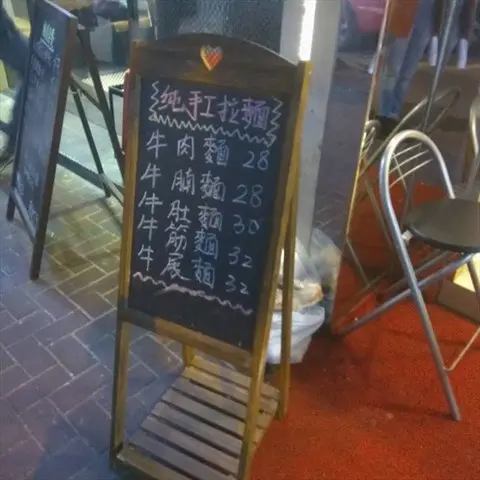 纯手工拉麵
牛肉麵 28
牛腩麵 28
牛肚麵 30
牛筋麵 32
牛展麵 32